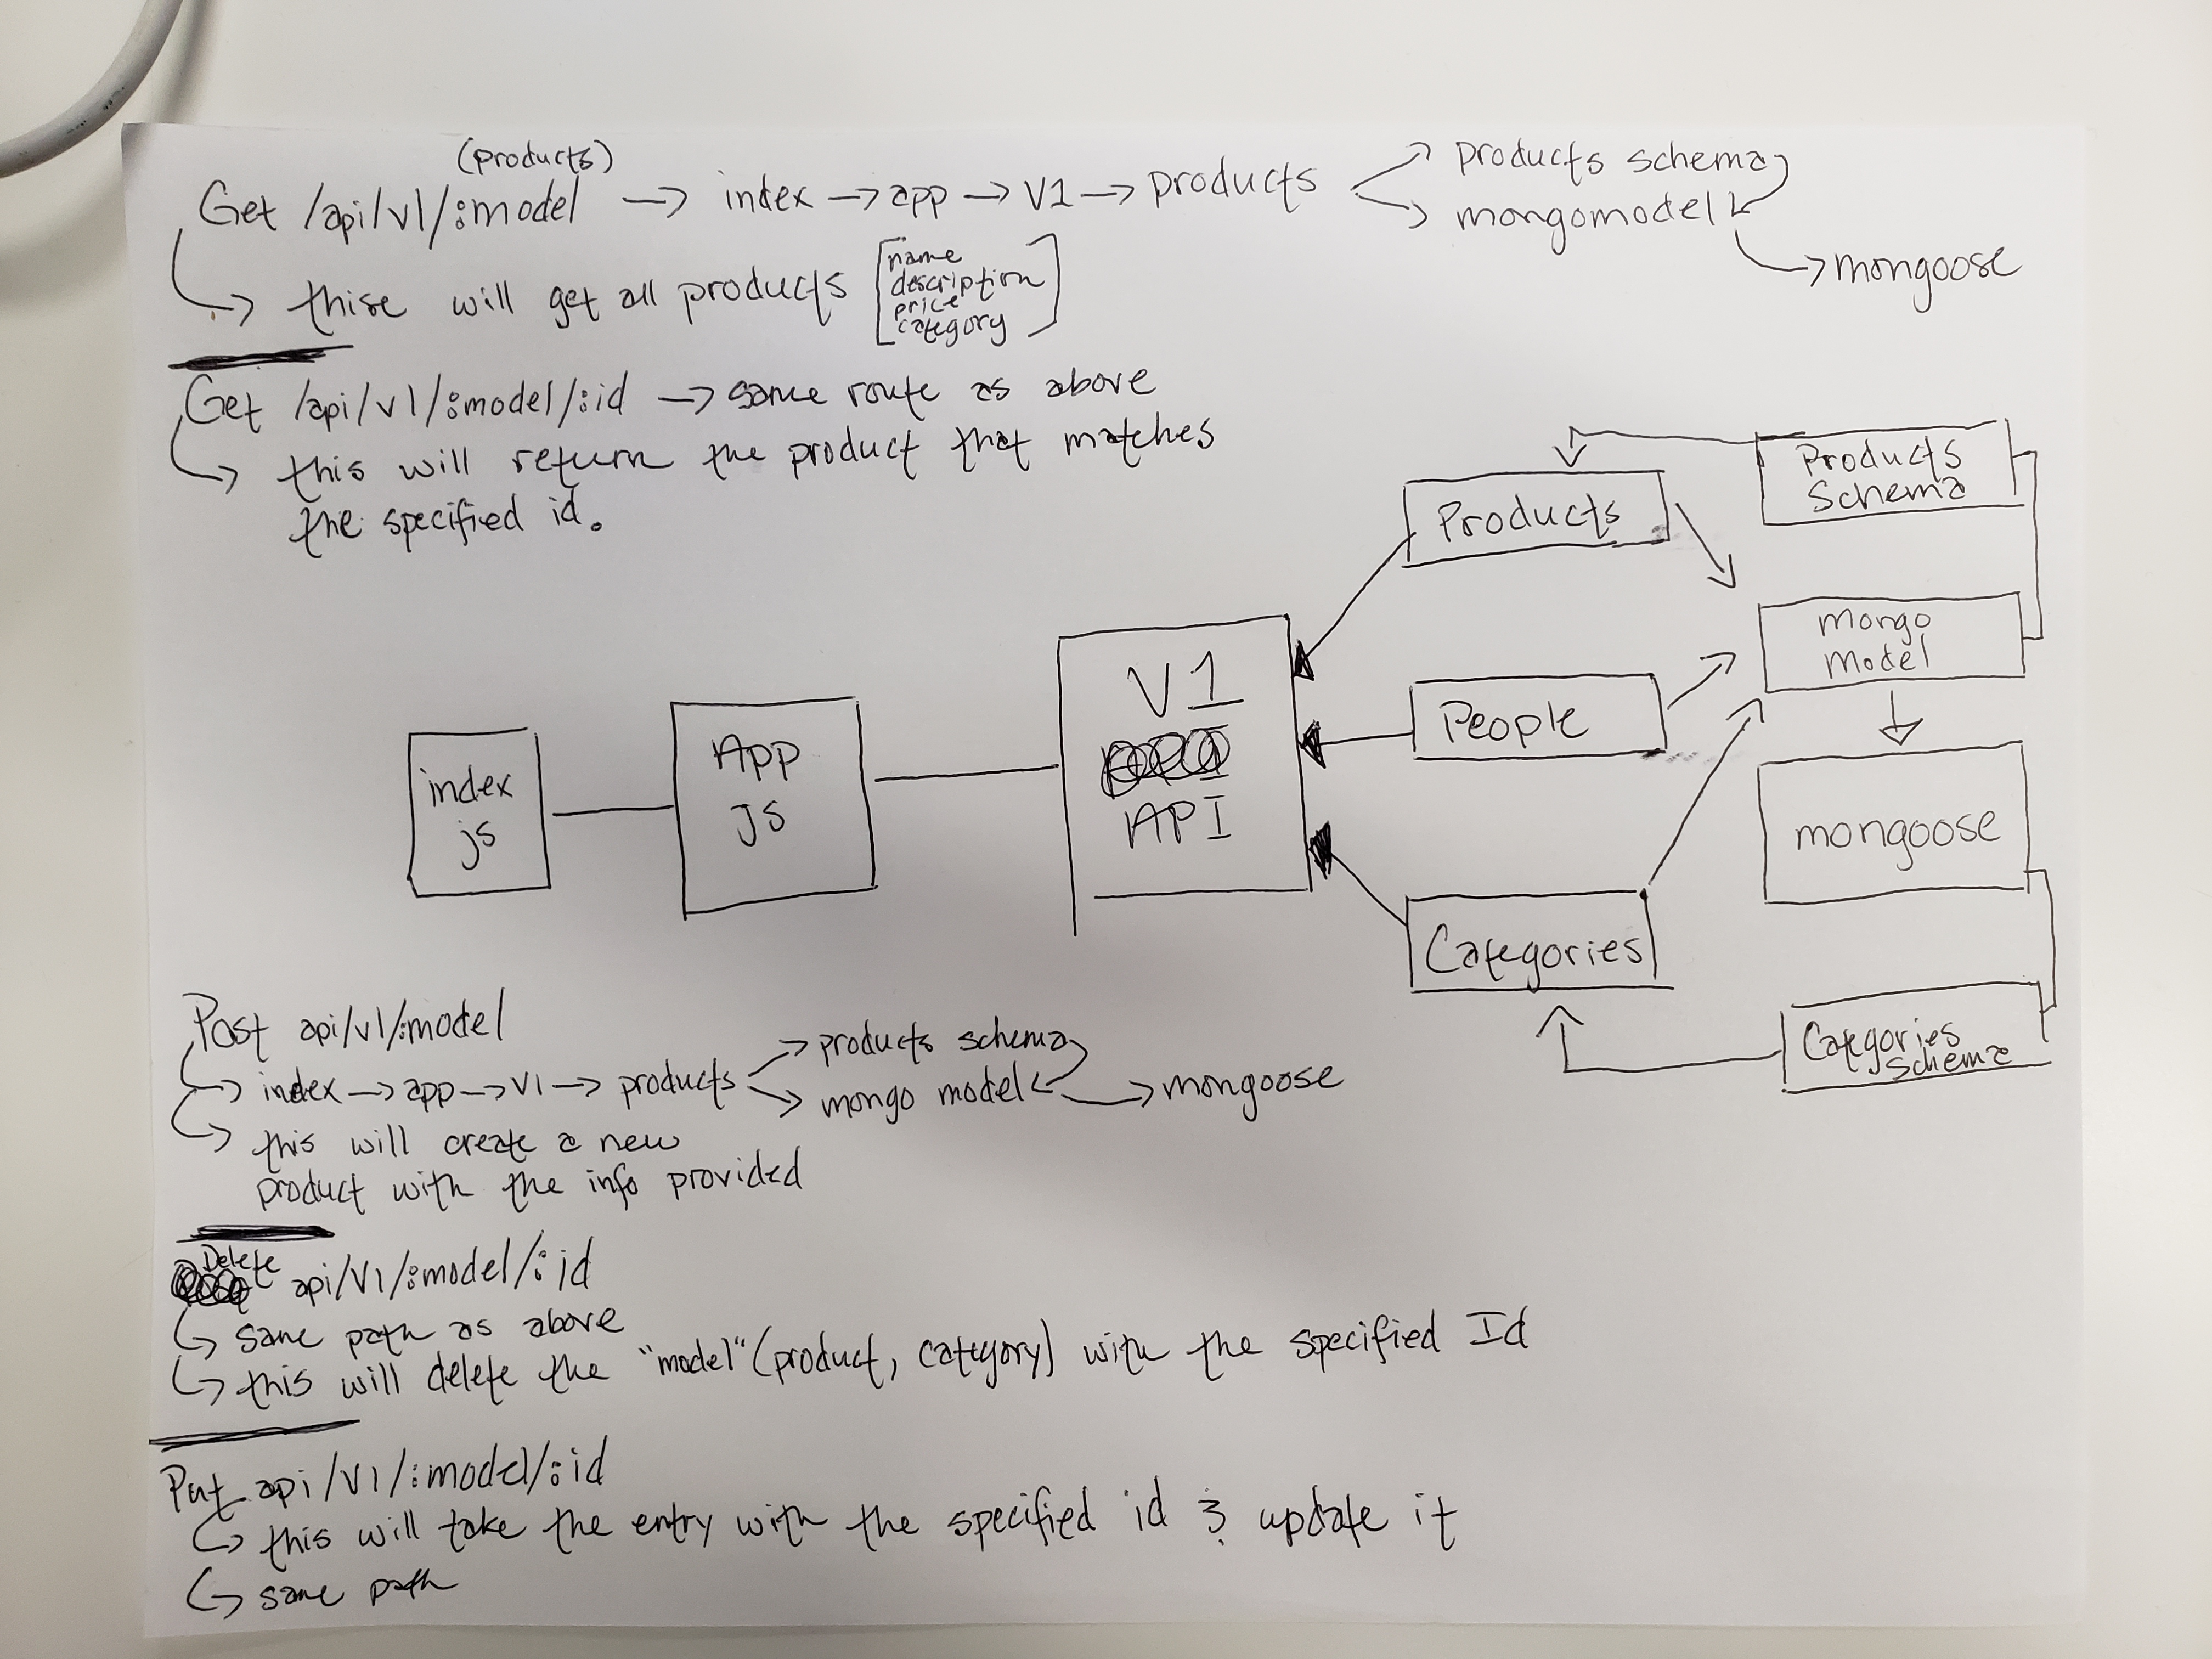 (products)
Get /api/v1/:model → index → app → V1 → products → products schema
→ mongomodel → mongoose
↳ thise will get all products [name
description
price
category]
Get /api/v1/:model/:id → same route as above
↳ this will return the product that matches
the specified id.
index
js
App
Js
V1
API
Products
People
Categories
Products
Schema
mongo
model
mongoose
Categories
Schema
Post api/v1/:model
↳ index → app → v1 → products → products schema
→ mongo model → mongoose
↳ this will create a new
product with the info provided
Delete api/V1/:model/:id
↳ same path as above
↳ this will delete the "model" (product, category) with the specified Id
Put api/v1/:model/:id
↳ this will take the entry with the specified id & update it
↳ same path